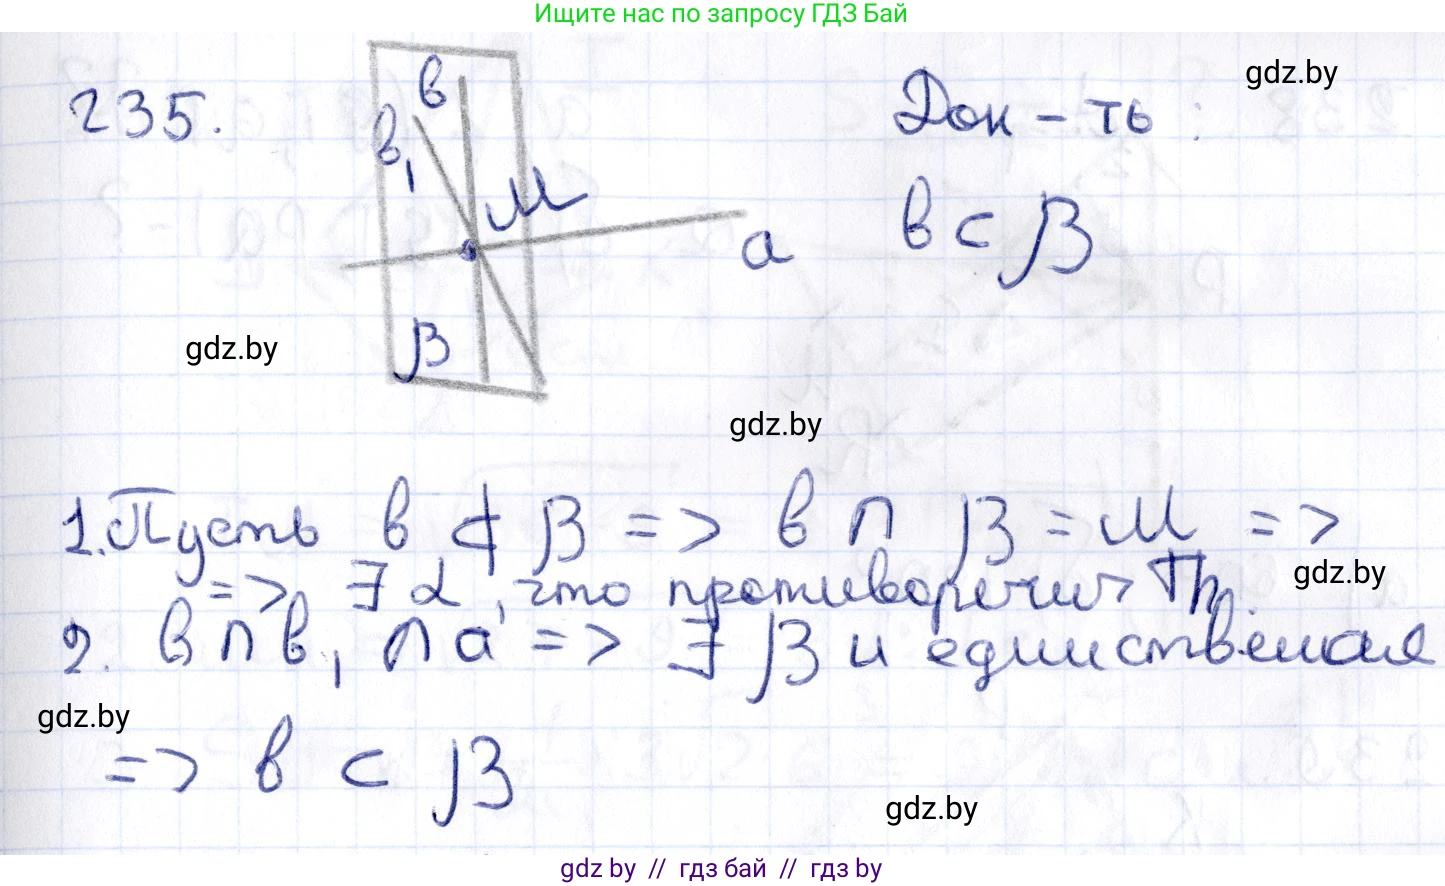 Ищите нас по запросу ГДЗ Бай
gdz.by
235.
в
в₁
М
а
β
Док-ть:
в ⊂ β
gdz.by
gdz.by
1. Пусть в ⊄ β => в ∩ β = М =>
=> ∃ α, что противоречит Th.
gdz.by
2. в ∩ в₁ ∩ а => ∃ β и единственная
gdz.by
=> в ⊂ β
gdz.by
gdz by // гдз бай // гдз by